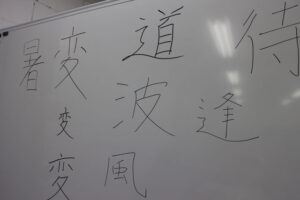 暑 変 道 待
変 波 逢
変 風